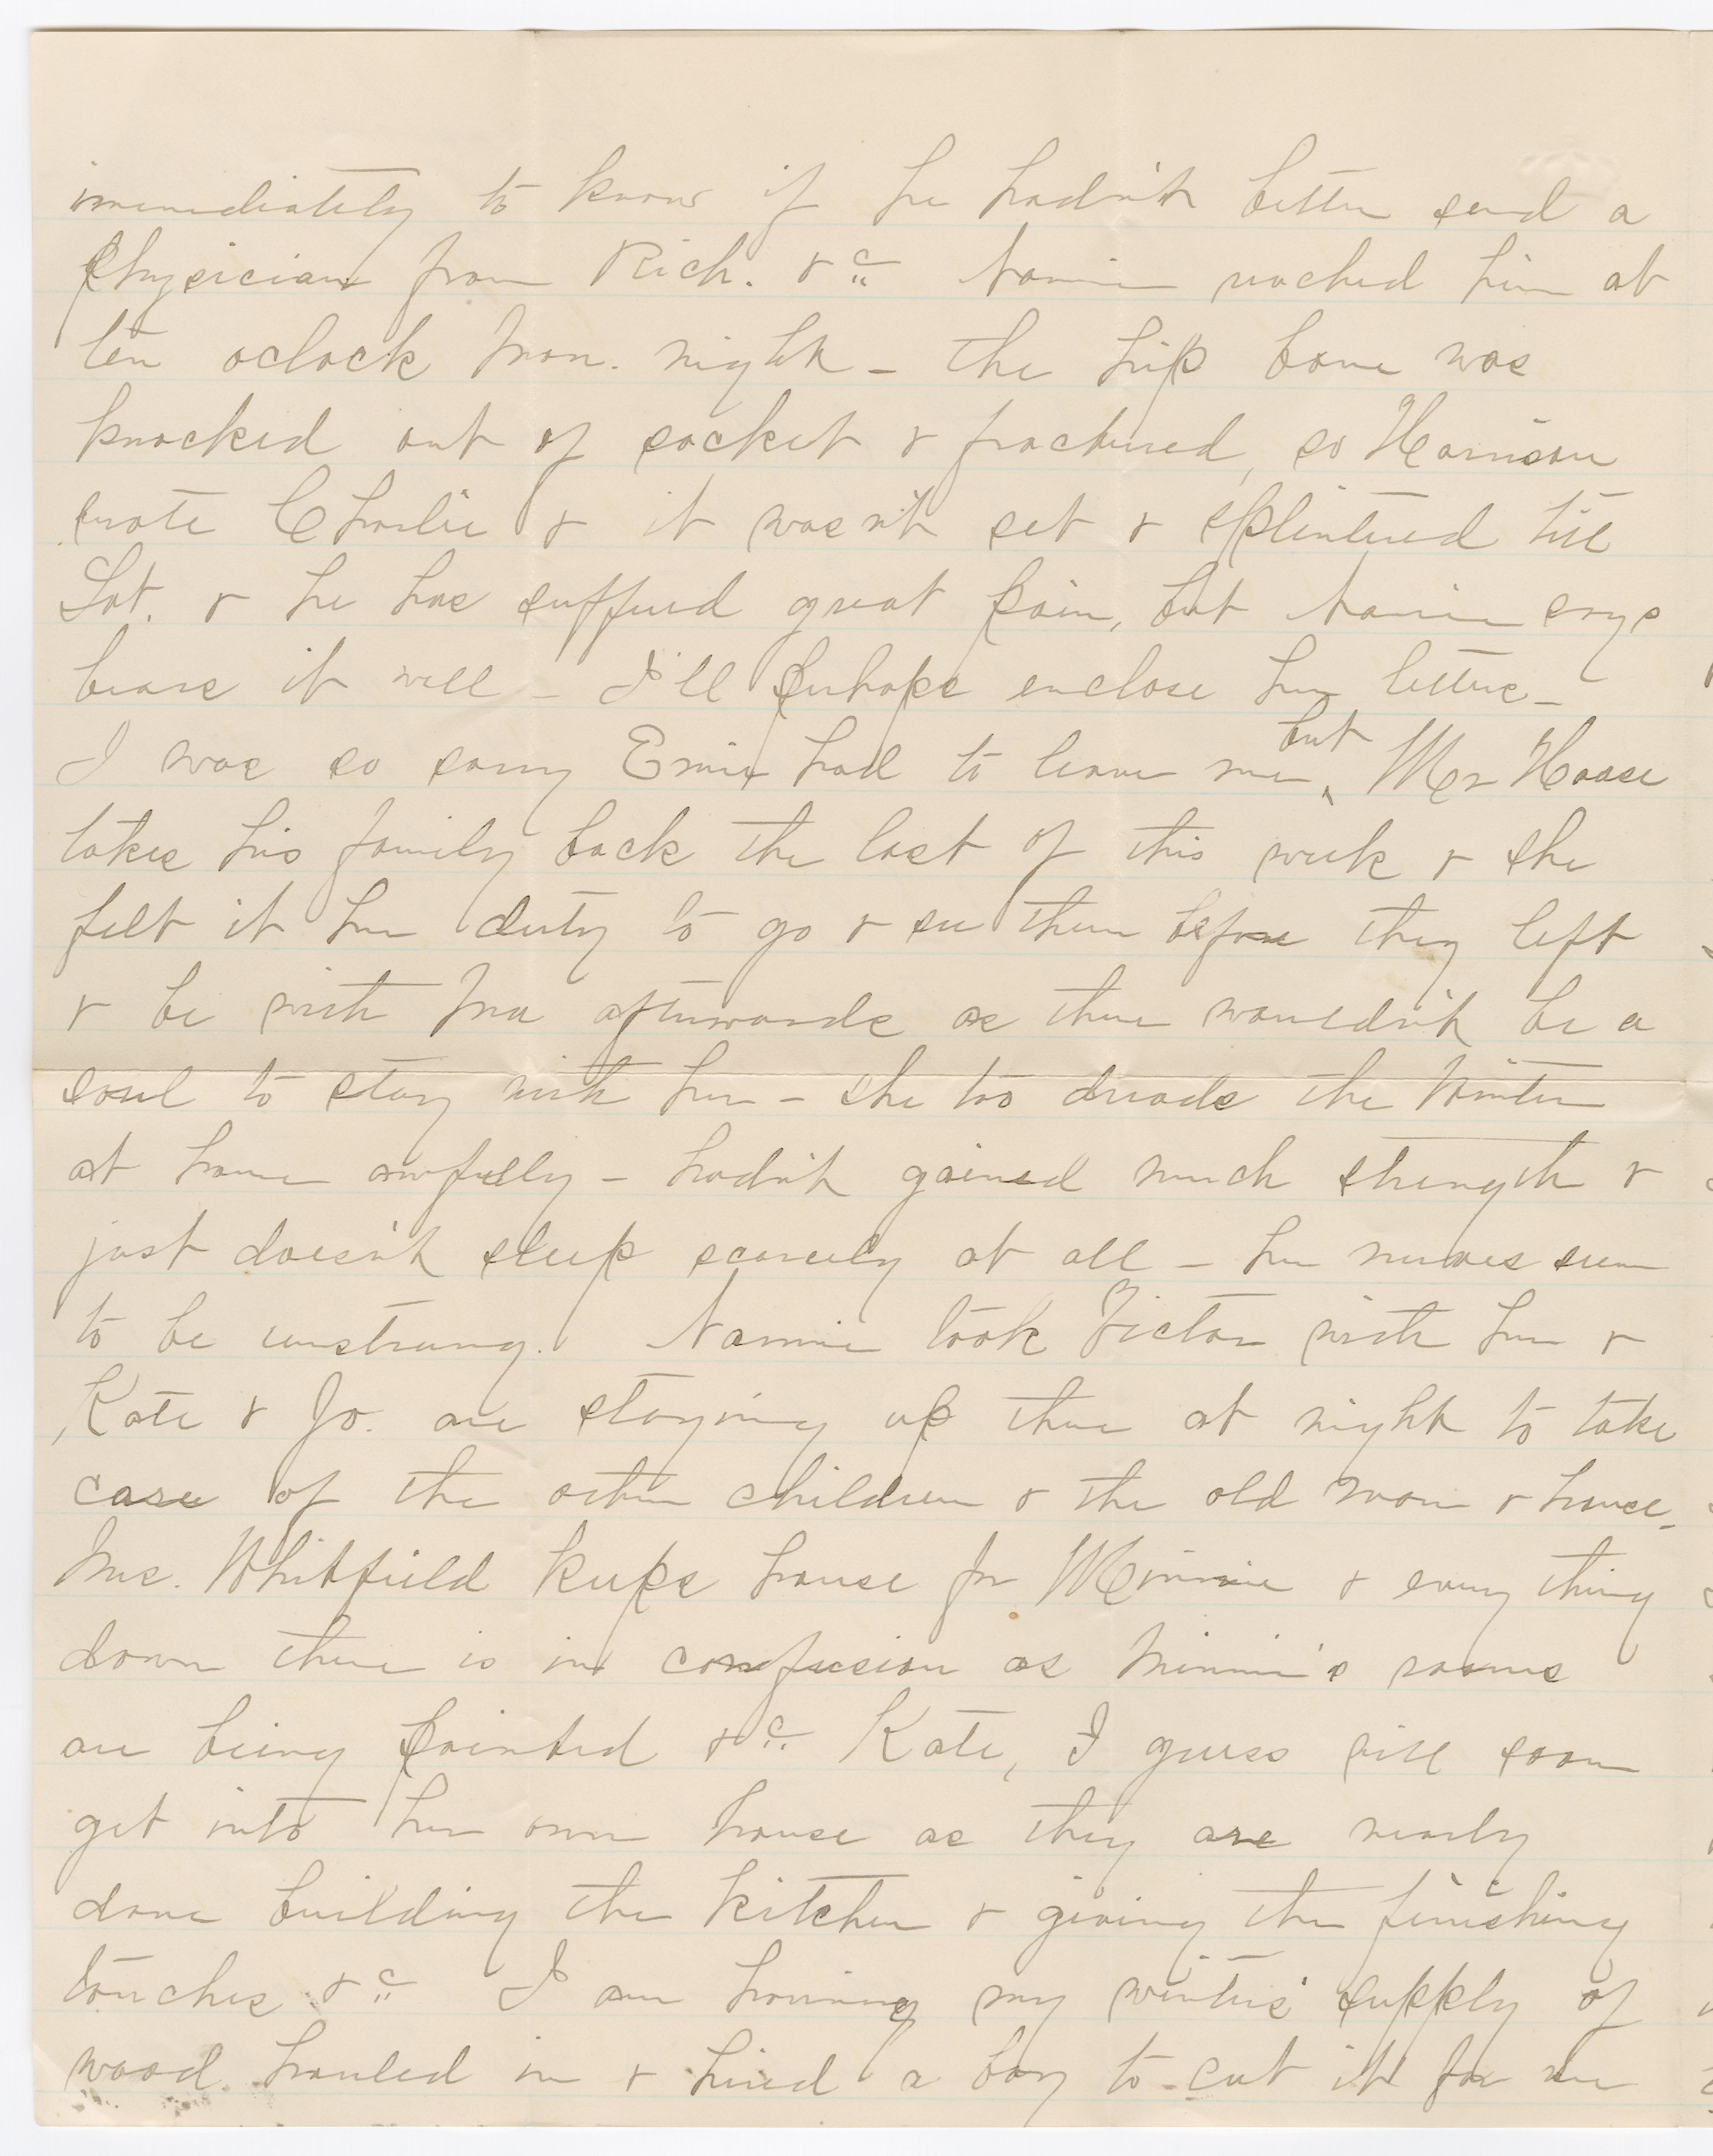 immediately to know if he hadn't better send a
physician from Rich. &c Nannie reached him at
ten oclock Mon. night – the hip bone was
knocked out of socket & fractured, so Harrison
wrote Charlie & it wasn't set & splintered till
Sat. & he has suffered great pain, but Nannie says
bears it well – I'll perhaps enclose her letters –
I was so sorry Ernie had to leave me, but Mr Haase
takes his family back the last of this week & she
felt it her duty to go & see them before they left
& be with Ma afterwards as there wouldn't be a
soul to stay with her – she too dreads the Winter
at home awfully – hadn't gained much strength &
just doesn't sleep scarcely at all – her nerves seem
to be unstrung. Nannie took Victor with her &
Kate & Jo. are staying up there at night to take
care of the other children & the old man & house.
Mrs. Whitfield keeps house for Minnie & every thing
down there is in confusion as Minnie's rooms
are being painted &c Kate, I guess will soon
get into her own house as they are nearly
done building the kitchen & giving the finishing
touches &c I am having my winters' supply of
wood hauled in & hired a boy to cut it for me